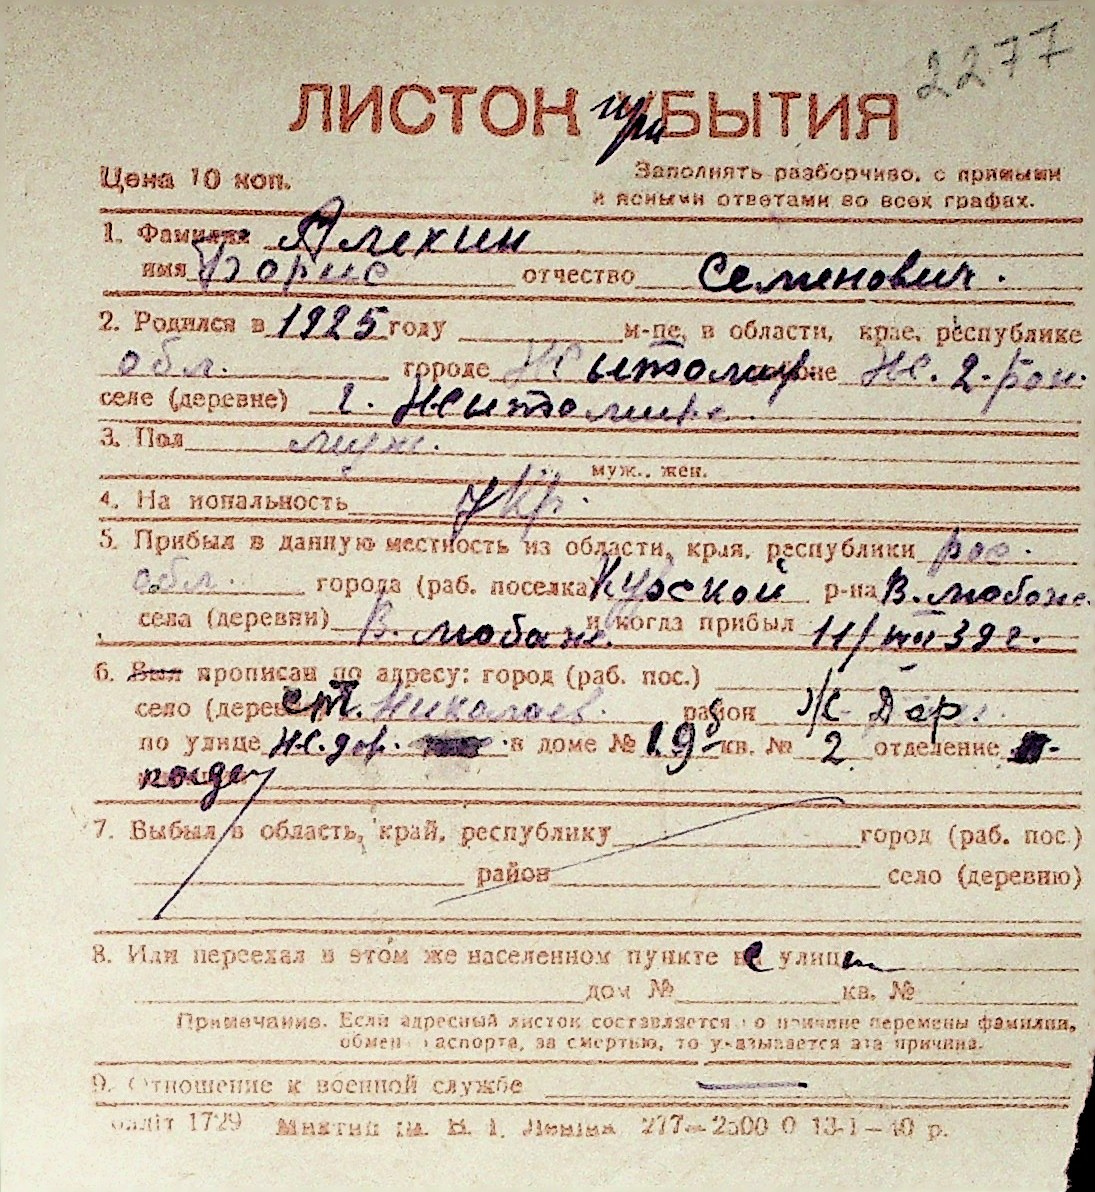 2277
ЛИСТОК прибЫТИЯ
Цена 10 коп.
Заполнять разборчиво, с прямыми
и ясными ответами во всех графах.
1. Фамилия Алехин
имя Борис отчество Семенович.
2. Родился в 1925 году м-це, в области, крае, республике
обл. городе Житомир районе Ж. 2-рай.
селе (деревне) г. Житомире
3. Пол муж.
муж., жен.
4. Национальность Укр.
5. Прибыл в данную местность из области, края, республики рос.
обл. города (раб. поселка) Курской р-на В. любаже.
села (деревни) В. любаже. и когда прибыл 11/VIII 39 г.
6. Был прописан по адресу: город (раб. пос.)
село (деревня) ст. Николаев. район Ж-Дор.
по улице Ж.дор. в доме № 19б кв. № 2 отделение
7. Выбыл в область, край, республику город (раб. пос.)
район село (деревню)
8. Или переехал в этом же населенном пункте с улицы
дом № кв. №
Примечание. Если адресный листок составляется по причине перемены фамилии,
обмен паспорта, за смертью, то указывается эта причина.
9. Отношение к военной службе —
1729 277—2500 0 13-1—40 р.